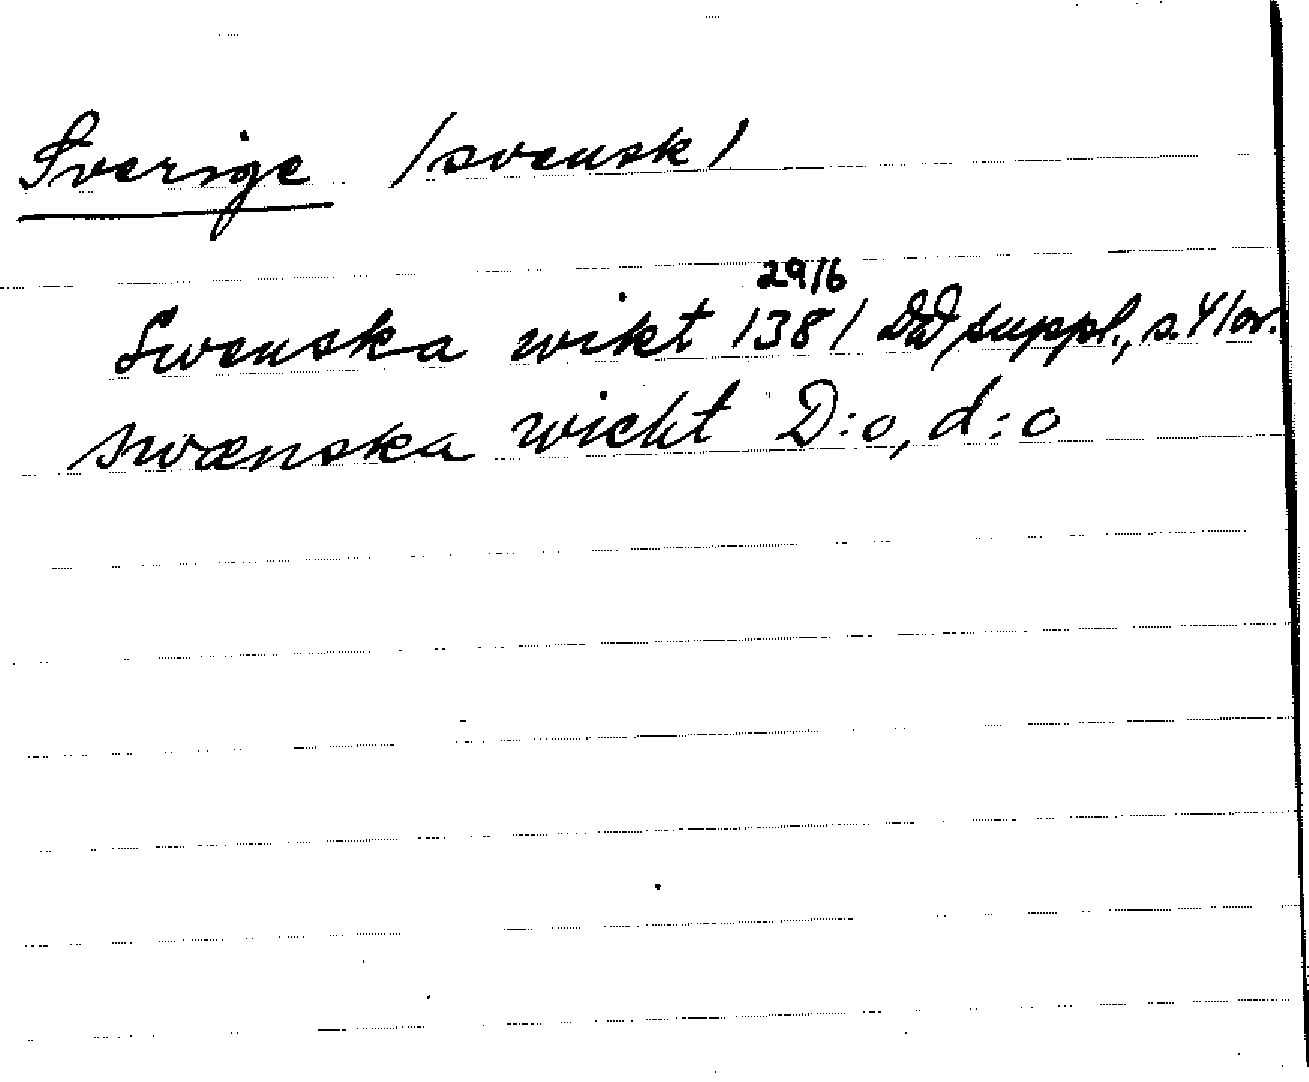 Sverige /svensk/
Swenska wikt 29/6 1381 DD suppl., s. 4/or.
swænska wicht D:o, d:o